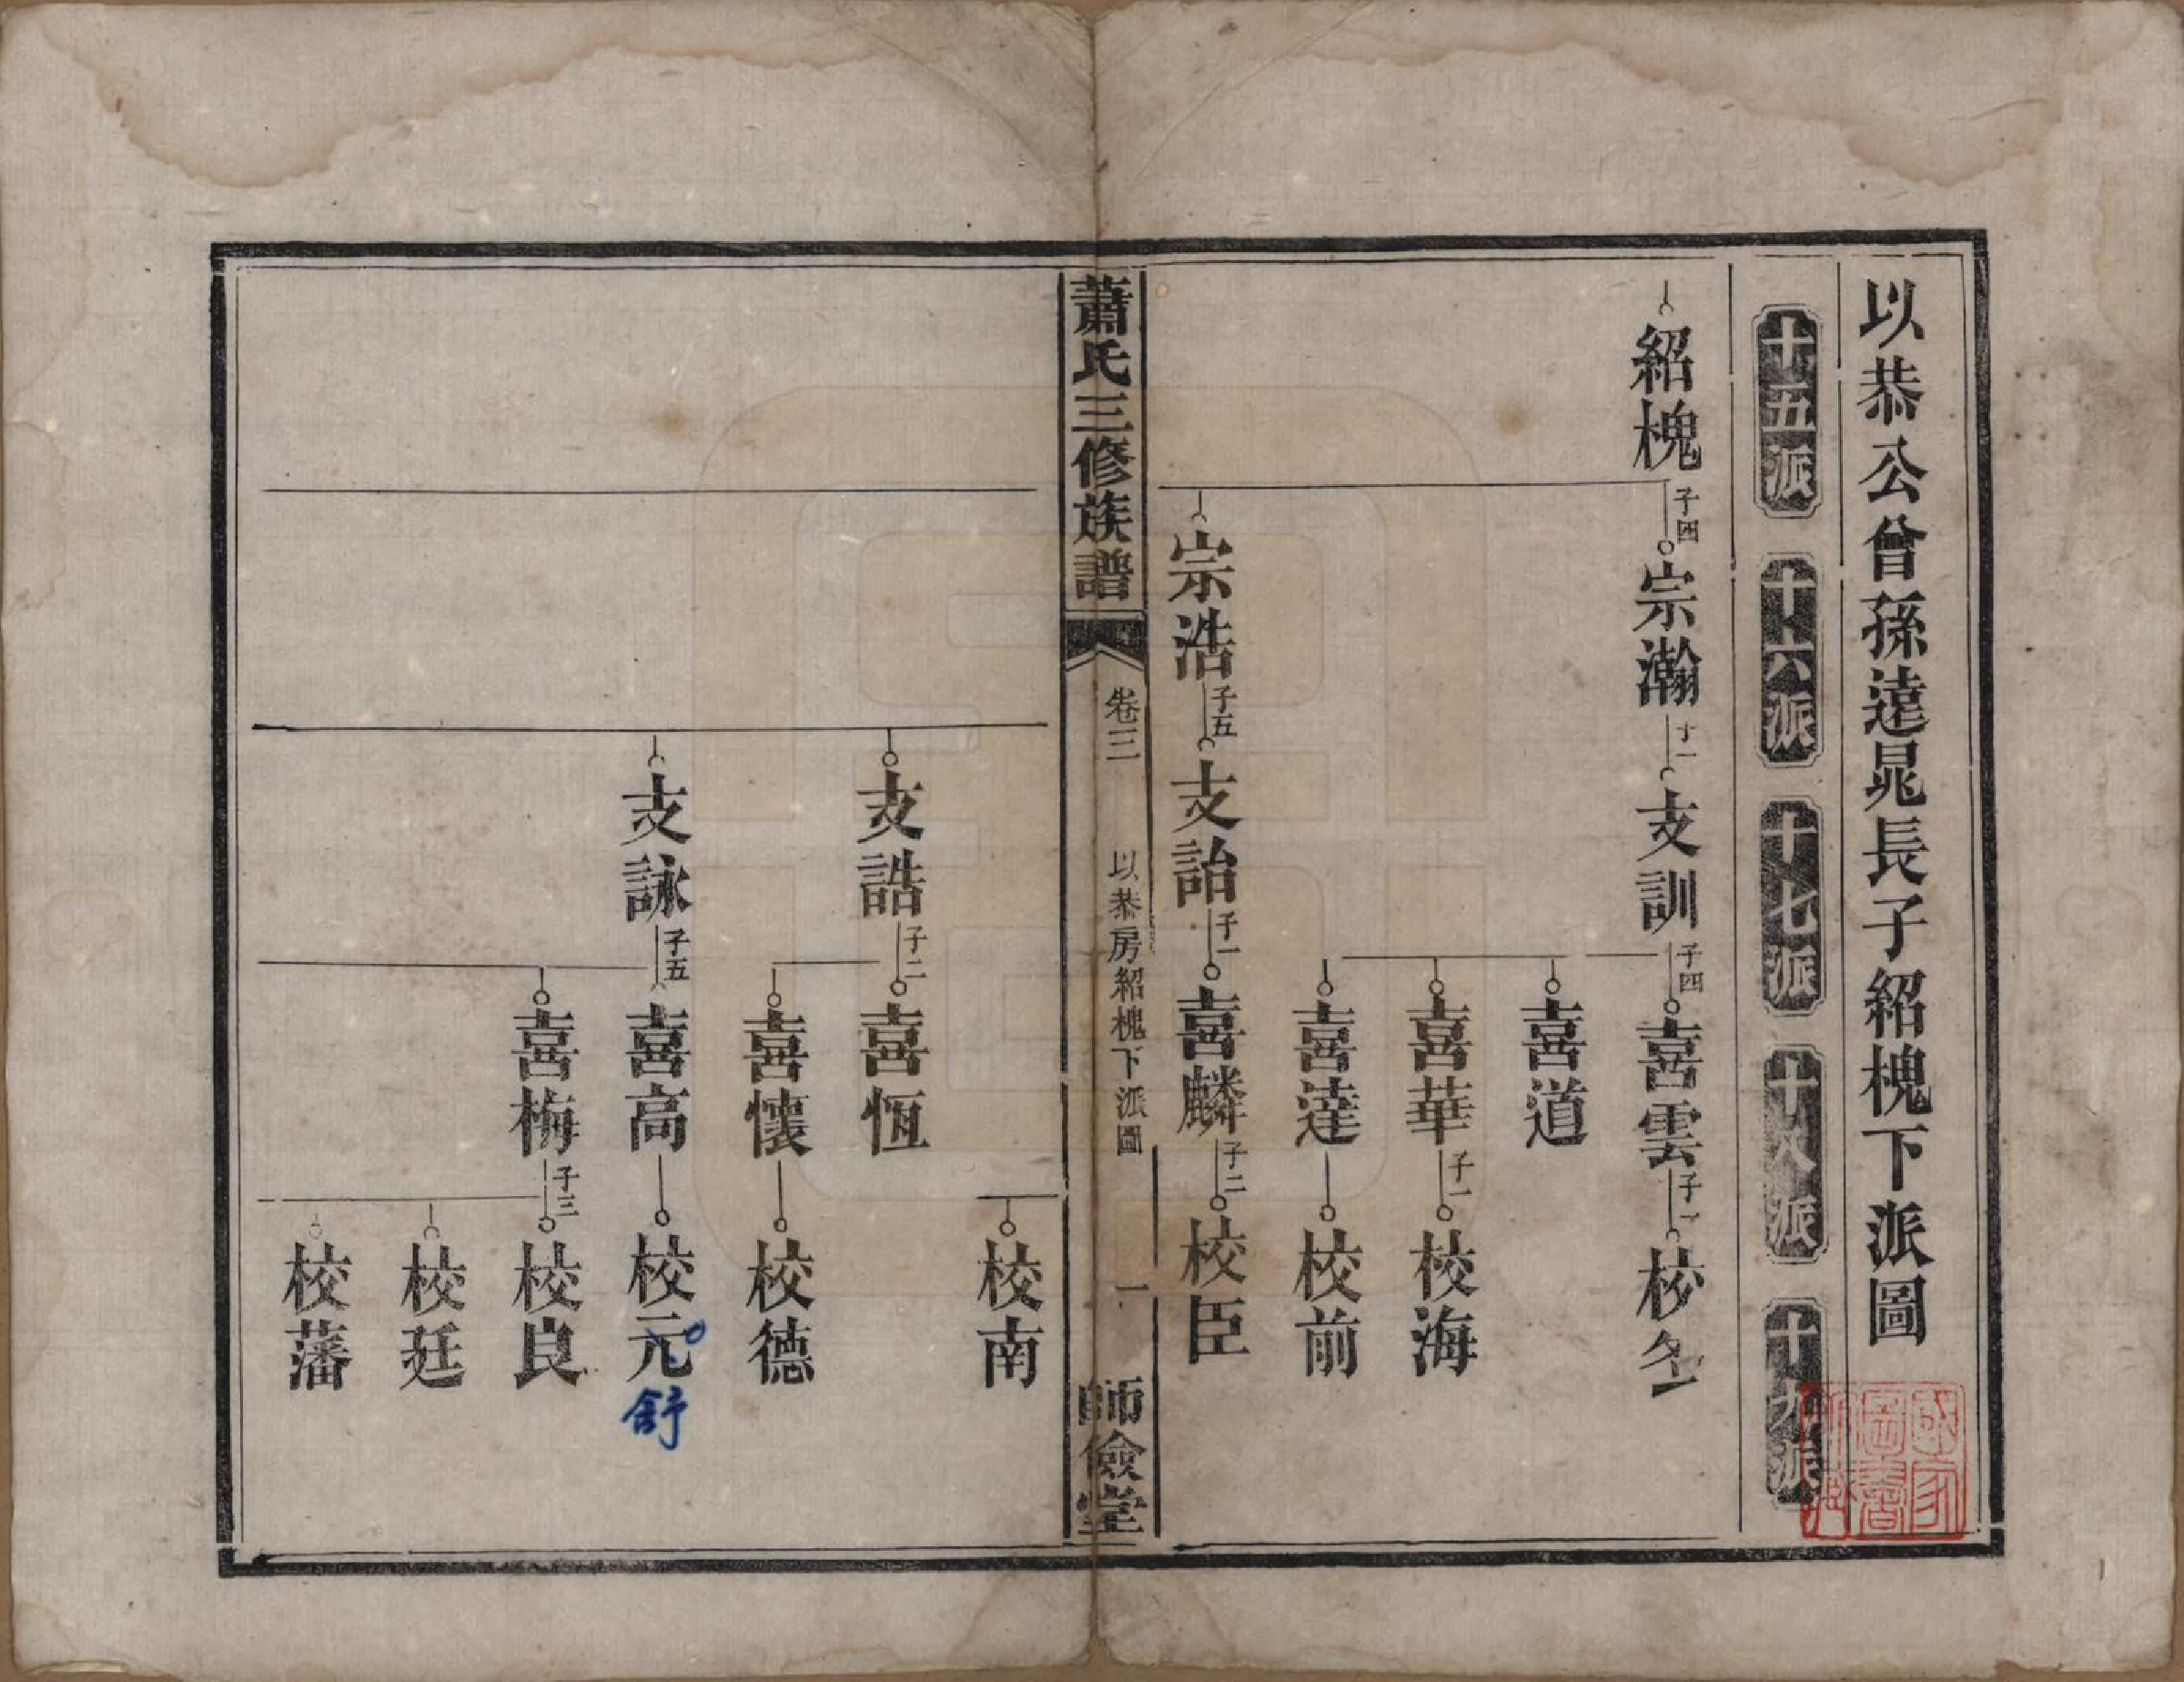 以恭公曾孫遠晁長子紹槐下派圖
十五派
十六派
十七派
十八派
十九派
紹槐
子四
宗瀚
子一
支訓
子四
喜雲
子一
校
喜道
喜華
子一
校海
喜達
校前
宗浩
子五
支詒
子一
喜麟
子二
校臣
蕭氏三修族譜
卷三
以恭房紹槐下派圖
一
師儉堂
校南
支誥
子二
喜恆
喜懷
校德
支詠
子五
喜高
校元
舒
喜梅
子三
校良
校廷
校藩